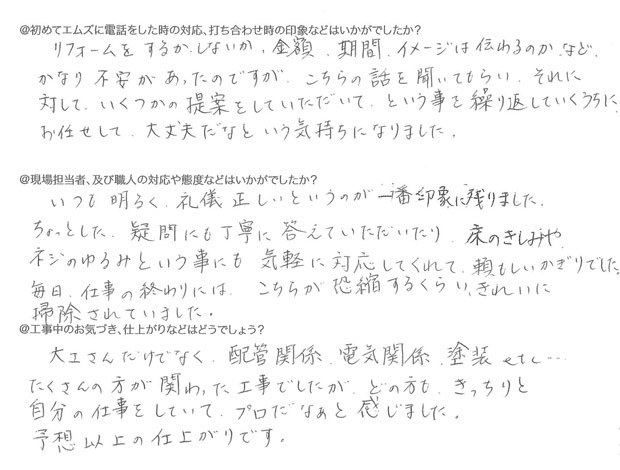 @初めてエムズに電話をした時の対応、打ち合わせ時の印象などはいかがでしたか?
リフォームをするか、しないか、金額、期間、イメージは伝わるのか、など、
かなり不安があったのですが、こちらの話を聞いてもらい、それに
対して、いくつかの提案をしていただいて、という事を繰り返していくうちに、
お任せして、大丈夫だなという気持ちになりました。
@現場担当者、及び職人の対応や態度などはいかがでしたか?
いつも明るく、礼儀正しいというのが一番印象に残りました。
ちょっとした、疑問にも丁寧に答えていただいたり、床のきしみや、
ネジのゆるみという事にも気軽に対応してくれて、頼もしいかぎりでした。
毎日、仕事の終わりには、こちらが恐縮するくらい、きれいに
掃除されていました。
@工事中のお気づき、仕上がりなどはどうでしょう?
大工さんだけでなく、配管関係、電気関係、塗装etc…
たくさんの方が関わった工事でしたが、どの方も、きっちりと
自分の仕事をしていて、プロだなぁと感じました。
予想以上の仕上がりです。